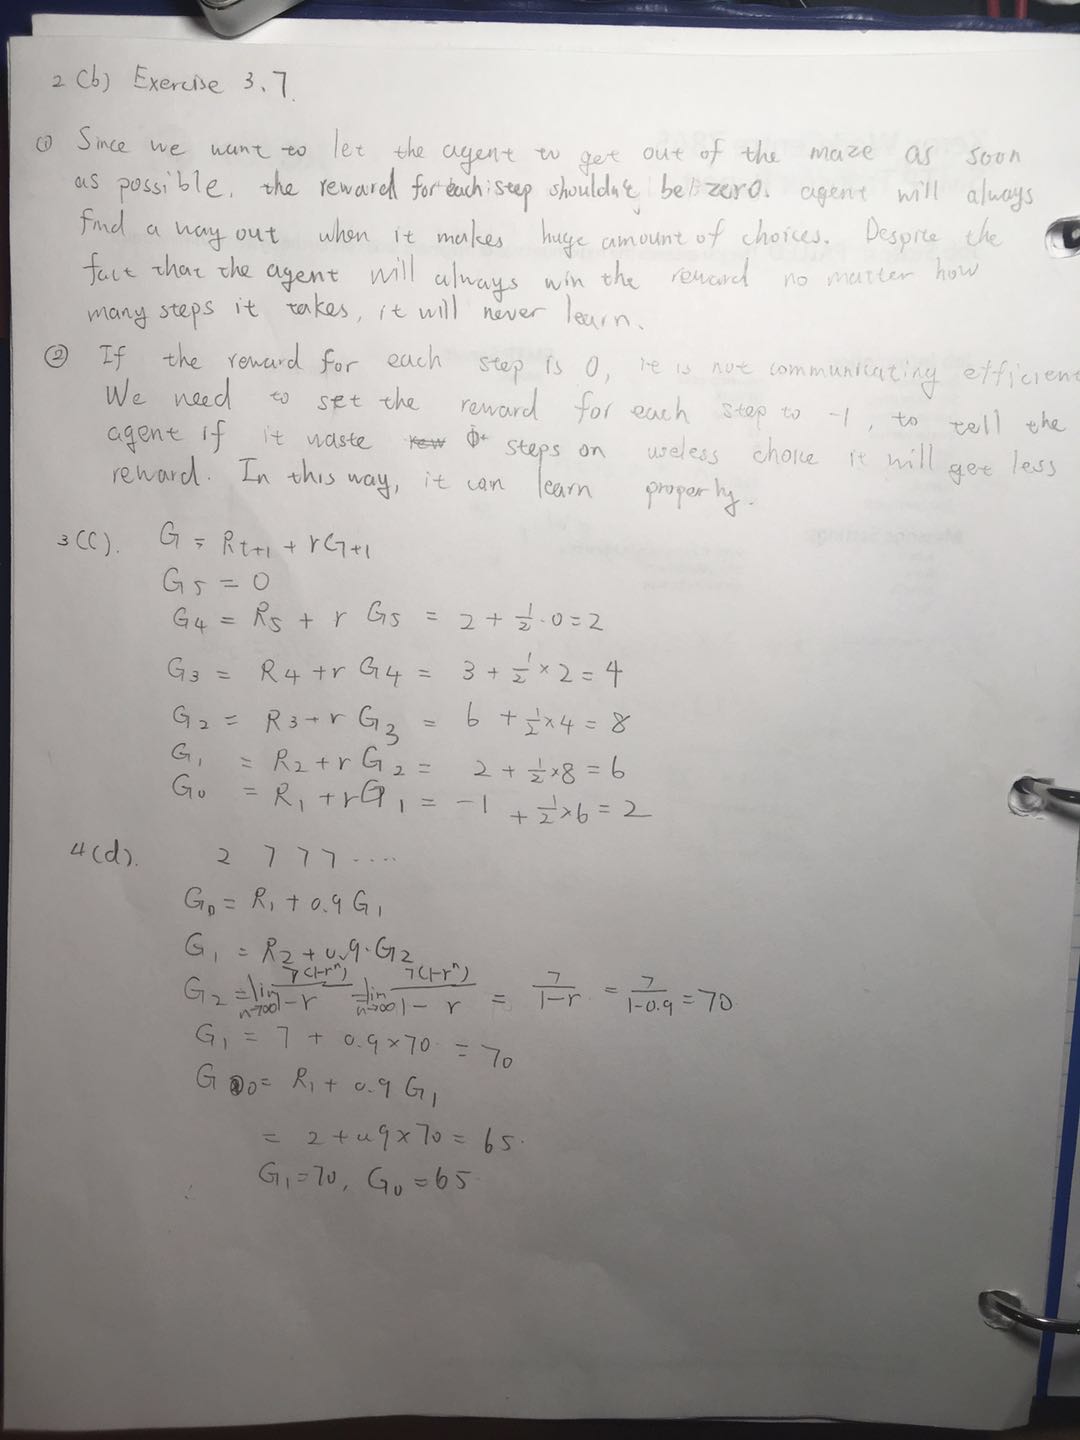 2 (b) Exercise 3.7.
① Since we want to let the agent to get out of the maze as soon
as possible, the reward for each step shouldn't be zero. agent will always
find a way out when it makes huge amount of choices. Despite the
fact that the agent will always win the reward no matter how
many steps it takes, it will never learn.
② If the reward for each step is 0, it is not communicating efficient
We need to set the reward for each step to -1, to tell the
agent if it waste steps on useless choice it will get less
reward. In this way, it can learn properly.
3(C). G = Rt+1 + rG+1
G5 = 0
G4 = R5 + r G5 = 2 + 1/2 · 0 = 2
G3 = R4 + r G4 = 3 + 1/2 × 2 = 4
G2 = R3 + r G3 = 6 + 1/2 × 4 = 8
G1 = R2 + r G2 = 2 + 1/2 × 8 = 6
G0 = R1 + r G1 = -1 + 1/2 × 6 = 2
4(d). 2 7 7 7 ....
G0 = R1 + 0.9 G1
G1 = R2 + 0.9 · G2
G2 = lim n→∞ 7(1-r^n)/1-r = lim n→∞ 7(1-r^n)/1-r = 7/1-r = 7/1-0.9 = 70
G1 = 7 + 0.9 × 70 = 70
G0 = R1 + 0.9 G1
= 2 + 0.9 × 70 = 65.
G1 = 70, G0 = 65